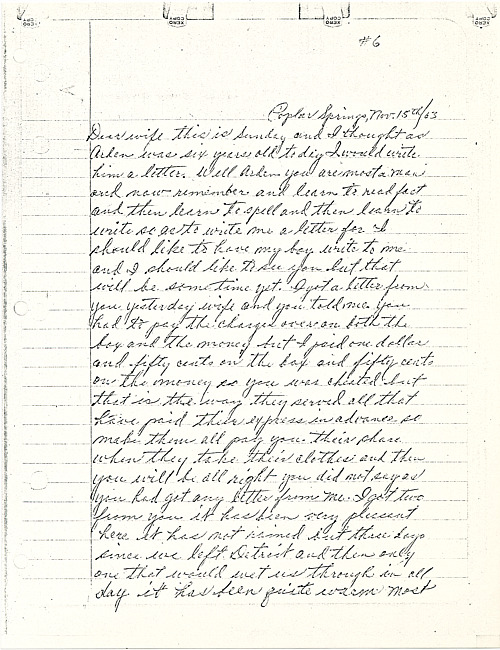 #6
Poplar Springs, Nov. 15th/63
Dear wife this is Sunday and I thought as
Arlen was six years old to day I would write
him a letter. Well Arlen you are most a man
and now remember and learn to read fast
and then learn to spell and then learn to
write so as to write me a letter for I
should like to have my boy write to me
and I should like to see you but that
will be some time yet. I got a letter from
you yesterday wife and you told me you
had to pay the charge over on both the
box and the money but I paid one dollar
and fifty cents on the box and fifty cents
on the money so you was cheated but
that is the way they served all that
have paid their express in advance so
make them all pay you their share
when they take their clothes and then
you will be all right you did not say as
you had got any letter from me. I got two
from you it has been very plesent
here it has not rained but three days
since we left Detroit and then only
one that would wet us through in all
day it has been quite warm most